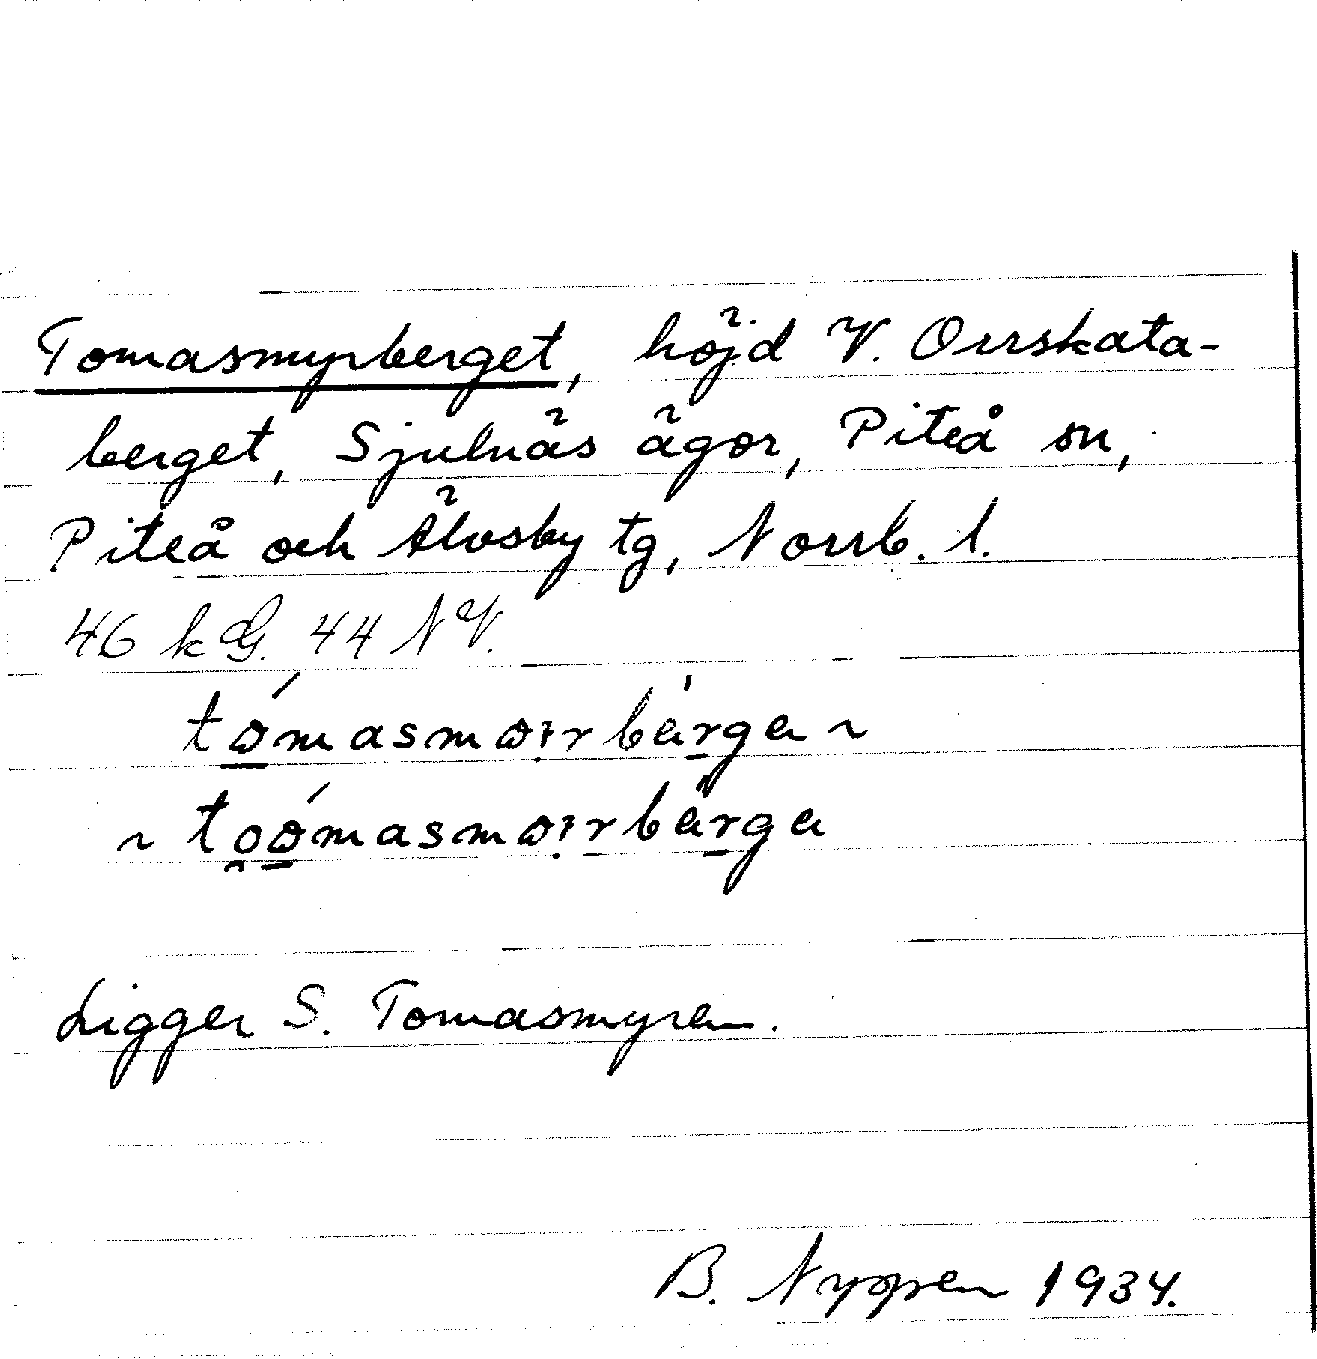 Tomasmyrberget, höjd V. Orrskata-
berget, Sjulnäs ägor, Piteå sn,
Piteå och Älvsby tg, Norrb. l.
46 k G. 44 NV.
tómasmørbärga ~
~ toómasmørbärga
Ligger S. Tomasmyren.
B. Nygren 1934.